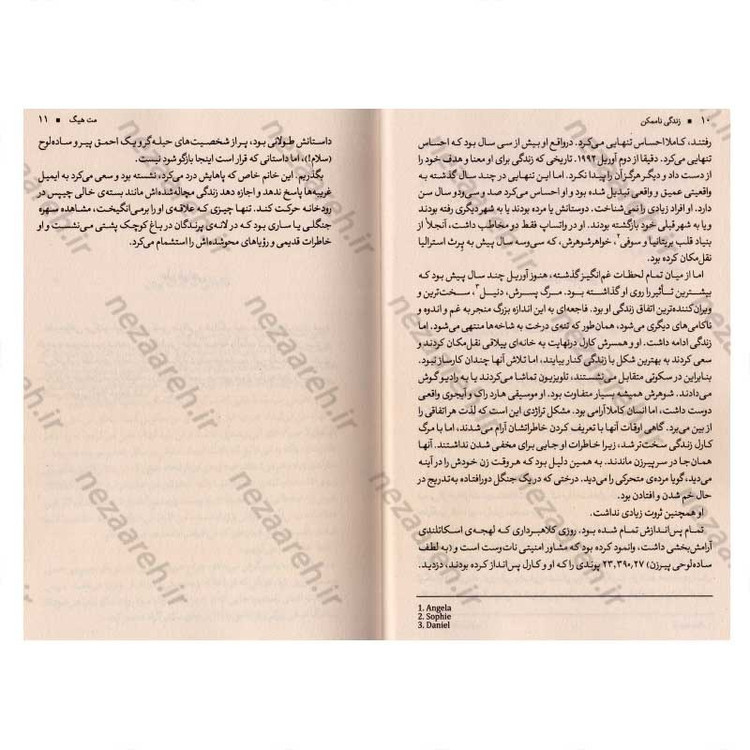 ۱۰ ■ زندگی ناممکن
رفتند، کاملا احساس تنهایی می‌کرد. درواقع او بیش از سی سال بود که احساس
تنهایی می‌کرد. دقیقا از دوم آوریل ۱۹۹۲. تاریخی که زندگی برای او معنا و هدف خود را
از دست داد و دیگر هرگز آن را پیدا نکرد. اما این تنهایی در چند سال گذشته به
واقعیتی عمیق و واقعی تبدیل شده بود و او احساس می‌کرد صد و سی‌ودو سال سن
دارد. او افراد زیادی را نمی‌شناخت. دوستانش یا مرده بودند یا به شهر دیگری رفته بودند
و یا به شهر قبلی خود بازگشته بودند. او در واتساپ فقط دو مخاطب داشت، آنجلا۱ از
بنیاد قلب بریتانیا و سوفی۲، خواهرشوهرش، که سی‌وسه سال پیش به پرث استرالیا
نقل‌مکان کرده بود.
اما از میان تمام لحظات غم‌انگیز گذشته، هنوز آوریل چند سال پیش بود که
بیشترین تأثیر را روی او گذاشته بود. مرگ پسرش، دنیل۳، سخت‌ترین و
ویران‌کننده‌ترین اتفاق زندگی او بود. فاجعه‌ای به این اندازه بزرگ منجر به غم و اندوه و
ناکامی‌های دیگری می‌شود، همان‌طور که تنه‌ی درخت به شاخه‌ها منتهی می‌شود. اما
زندگی ادامه داشت. او و همسرش کارل درنهایت به خانه‌ای ییلاقی نقل‌مکان کردند و
سعی کردند به بهترین شکل با زندگی کنار بیایند، اما تلاش آنها چندان کارساز نبود.
بنابراین در سکوتی متقابل می‌نشستند، تلویزیون تماشا می‌کردند یا به رادیو گوش
می‌دادند. شوهرش همیشه بسیار متفاوت بود. او موسیقی هارد راک و آبجوی واقعی
دوست داشت، اما انسان کاملاً آرامی بود. مشکل تراژدی این است که لذت هر اتفاقی را
از بین می‌برد. گاهی اوقات آنها با تعریف کردن خاطراتشان آرام می‌شدند، اما با مرگ
کارل زندگی سخت‌تر شد، زیرا خاطرات او جایی برای مخفی شدن نداشتند. آنها
همان‌جا در سر پیرزن ماندند. به همین دلیل بود که هروقت زن خودش را در آینه
می‌دید، گویا مرده‌ی متحرکی را می‌دید. درختی که در یک جنگل دورافتاده به‌تدریج در
حال خم شدن و افتادن بود.
او همچنین ثروت زیادی نداشت.
تمام پس‌اندازش تمام شده بود. روزی کلاهبرداری که لهجه‌ی اسکاتلندی
آرامش‌بخشی داشت، وانمود کرده بود که مشاور امنیتی نات‌وست است و (به لطف
ساده‌لوحی پیرزن) ۲۳,۳۹۰,۲۷ پوندی را که او و کارل پس‌انداز کرده بودند، دزدید.
1. Angela
2. Sophie
3. Daniel
مت هیگ ■ ۱۱
داستانش طولانی بود، پر از شخصیت‌های حیله‌گر و یک احمق پیر و ساده‌لوح
(سلام!)، اما داستانی که قرار است اینجا بازگو شود نیست.
بگذریم. این خانم خاص که پاهایش درد می‌کرد، نشسته بود و سعی می‌کرد به ایمیل
غریبه‌ها پاسخ ندهد و اجازه دهد زندگی مچاله‌شده‌اش مانند بسته‌ی خالی چیپس در
رودخانه حرکت کند. تنها چیزی که علاقه‌ی او را برمی‌انگیخت، مشاهده سهره
جنگلی یا ساری بود که در لانه‌ی پرندگان در باغ کوچک پشتی می‌نشست و او
خاطرات قدیمی و رؤیاهای محوشده‌اش را استشمام می‌کرد.
nezaareh.ir